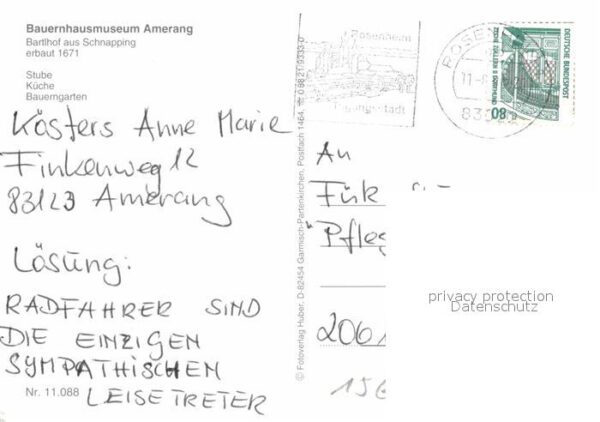 Bauernhausmuseum Amerang
Bartlhof aus Schnapping
erbaut 1671
Stube
Küche
Bauerngarten
Kösters Anne Marie
Finkenweg 12
83123 Amerang
Lösung:
RADFAHRER SIND
DIE EINZIGEN
SYMPATHISCHEN
LEISETRETER
Nr. 11.088
© Fotoverlag Huber, D-82454 Garmisch-Partenkirchen, Postfach 1464, ☎ 08821/9333-0
Rosenheim
DEUTSCHE BUNDESPOST
80
An
Pfleg
206
privacy protection
Datenschutz